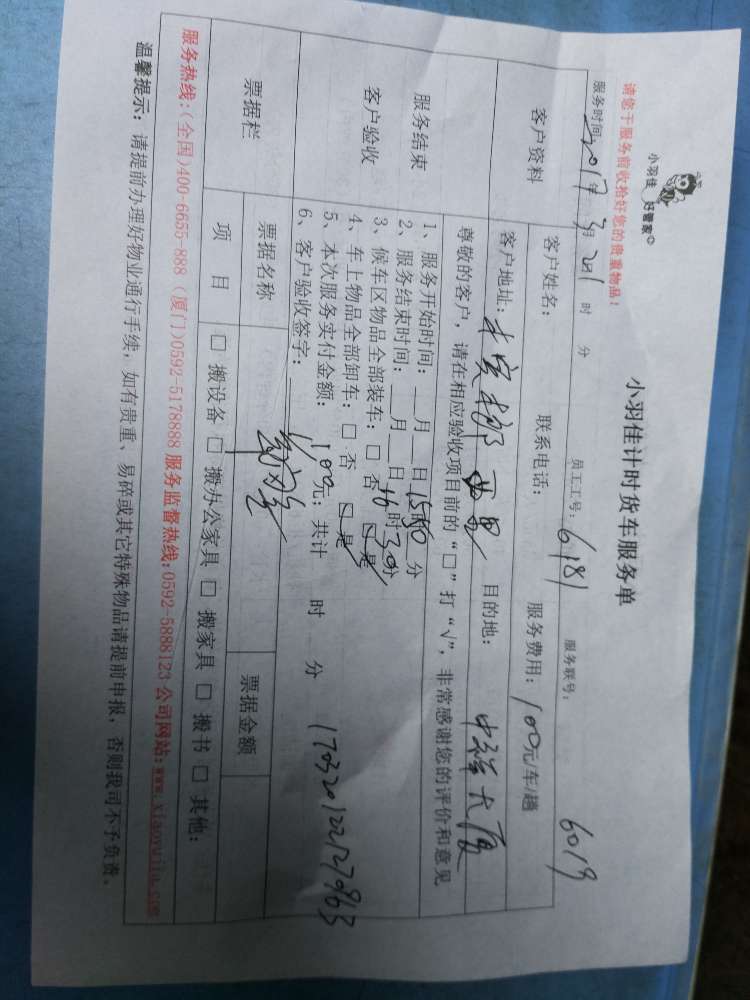 小羽佳 好管家
请您于服务前收拾好您的贵重物品！
小羽佳计时货车服务单
服务时间：2017年3月21日 时 分 员工工号：6181 服务联号：6019
客户资料
客户姓名： 联系电话： 服务费用：100元/车/趟
客户地址： 目的地：
尊敬的客户，请在相应验收项目前的“□”打“√”，非常感谢您的评价和意见
服务结束
客户验收
1、服务开始时间：__月__日15时50分
2、服务结束时间：__月__日16时30分
3、候车区物品全部装车：□ 否 ☑ 是
4、车上物品全部卸车：□ 否 ☑ 是
5、本次服务实付金额：100元；共计 时 分
6、客户验收签字：
票据栏 票据名称 票据金额
项 目 □ 搬设备 □ 搬办公家具 □ 搬家具 □ 搬书 □ 其他：
服务热线：（全国）400-6655-888（厦门）0592-5178888 服务监督热线：0592-5888123 公司网站：www.xiaoyujia.com
温馨提示：请提前办理好物业通行手续，如有贵重、易碎或其它特殊物品请提前申报，否则我司不予负责。